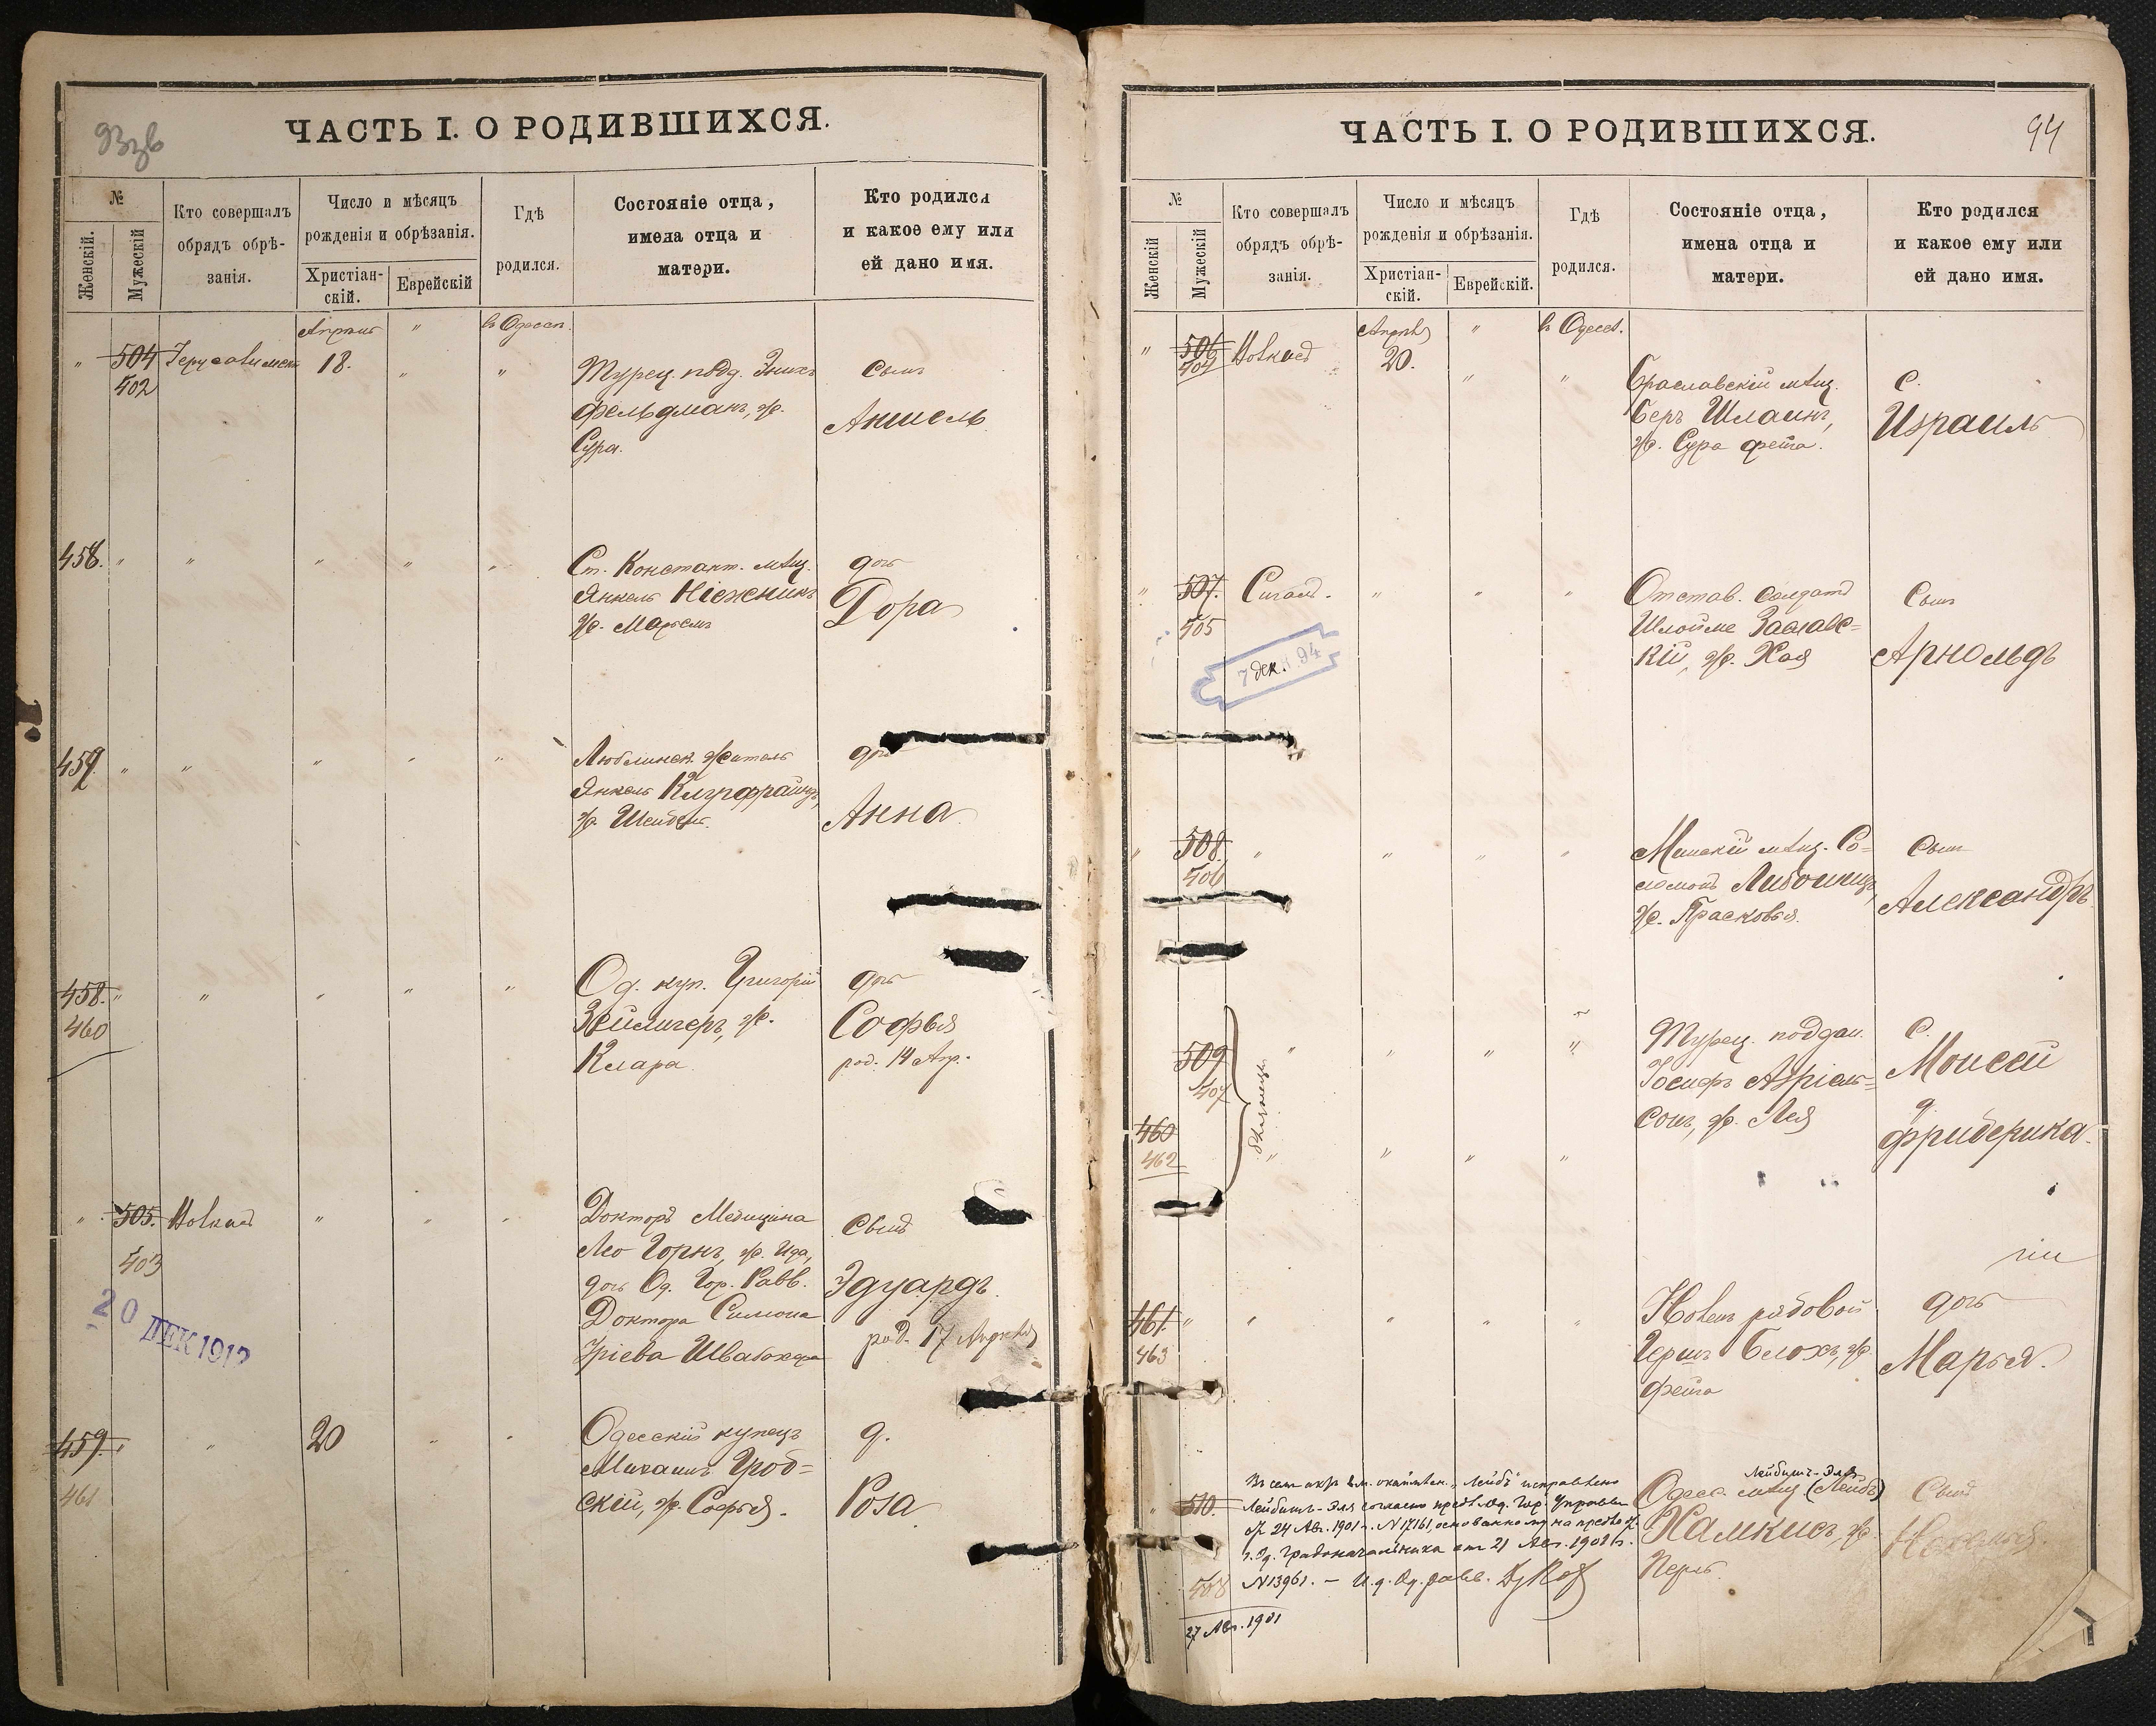 ЧАСТЬ I. О РОДИВШИХСЯ.
№
Женскій.
Мужескій
Кто совершалъ
обрядъ обрѣ-
занія.
Число и мѣсяцъ
рожденія и обрѣзанія.
Христіан-
скій.
Еврейскій
Гдѣ
родился.
Состояніе отца,
имена отца и
матери.
Кто родился
и какое ему или
ей дано имя.
Апрѣля " въ Одессѣ
" 504 18. " "
402
Турец. подд.
Фельдманъ, ж.
Сура.
Сынъ
Аншель
458. " " " " "
Ст. Констант. мѣщ.
Янкель Нѣжникъ
ж. Марьемъ
дочь
Дора
459. " " " " "
Люблинск. житель
Янкель
ж. Шейндля
дочь
Анна
458. " " " " "
460
Од. куп. Григорій
Зейлигеръ, ж.
Клара
дочь
Софья
род. 14 Апр.
" 505. " " "
403
Докторъ Медицины
Лео Горнъ, ж. Ида,
дочь Од. Гор. Равв.
Доктора Симона
Швабахера
Сынъ
Эдуардъ
род. 17 Апрѣля
20 ДЕК 1912
459. " " 20 " "
461
Одесскій купецъ
Михаилъ Грод=
скій, ж. Софья.
д.
Роза
ЧАСТЬ I. О РОДИВШИХСЯ.
94
№
Женскій
Мужескій
Кто совершалъ
обрядъ обрѣ-
занія.
Число и мѣсяцъ
рожденія и обрѣзанія.
Христіан-
скій.
Еврейскій.
Гдѣ
родился.
Состояніе отца,
имена отца и
матери.
Кто родился
и какое ему или
ей дано имя.
Апрѣля " въ Одессѣ.
" 506 20. " "
404
Браславскій мѣщ.
Беръ Шлаинъ,
ж. Сура Фейга.
С.
Израиль
" 507. Сигалъ. " " "
405
7 дек. 94
Отстав. солдатъ
Шлойме Заславс=
кій, ж. Хая
Сынъ
Арнольдъ
" 508 " " " "
406
Минскій мѣщ. Со=
ломонъ Либошицъ,
ж. Прасковья.
Сынъ
Александръ
509 " " " "
407
близнецы
Турец. поддан.
Іосифъ Азріель=
сонъ, ж. Лея
С.
Моисей
460
462
" " " "
д.
Фридерика.
461. " " " " "
463
рядовой
Гершъ Блохъ, ж.
Фейга
дочь
Марья.
" 510.
408
исправлено
Лейбишъ-Эля согласно предл. Од. Гор. Управы
24 Авг. 1901 г. N 17161, основанному на
г. Од. Градоначальника отъ 21 Авг. 1901 г.
N 13961. — И. д. Од. равв.
27 Авг. 1901
Лейбишъ-Эля
Одесс. мѣщ. (Лейбъ)
Хамкисъ, ж.
Перль
Сынъ